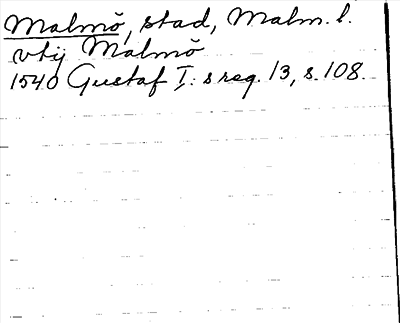 Malmö, stad, Malm. l.
vtij Malmö
1540 Gustaf I:s reg. 13, s. 108.